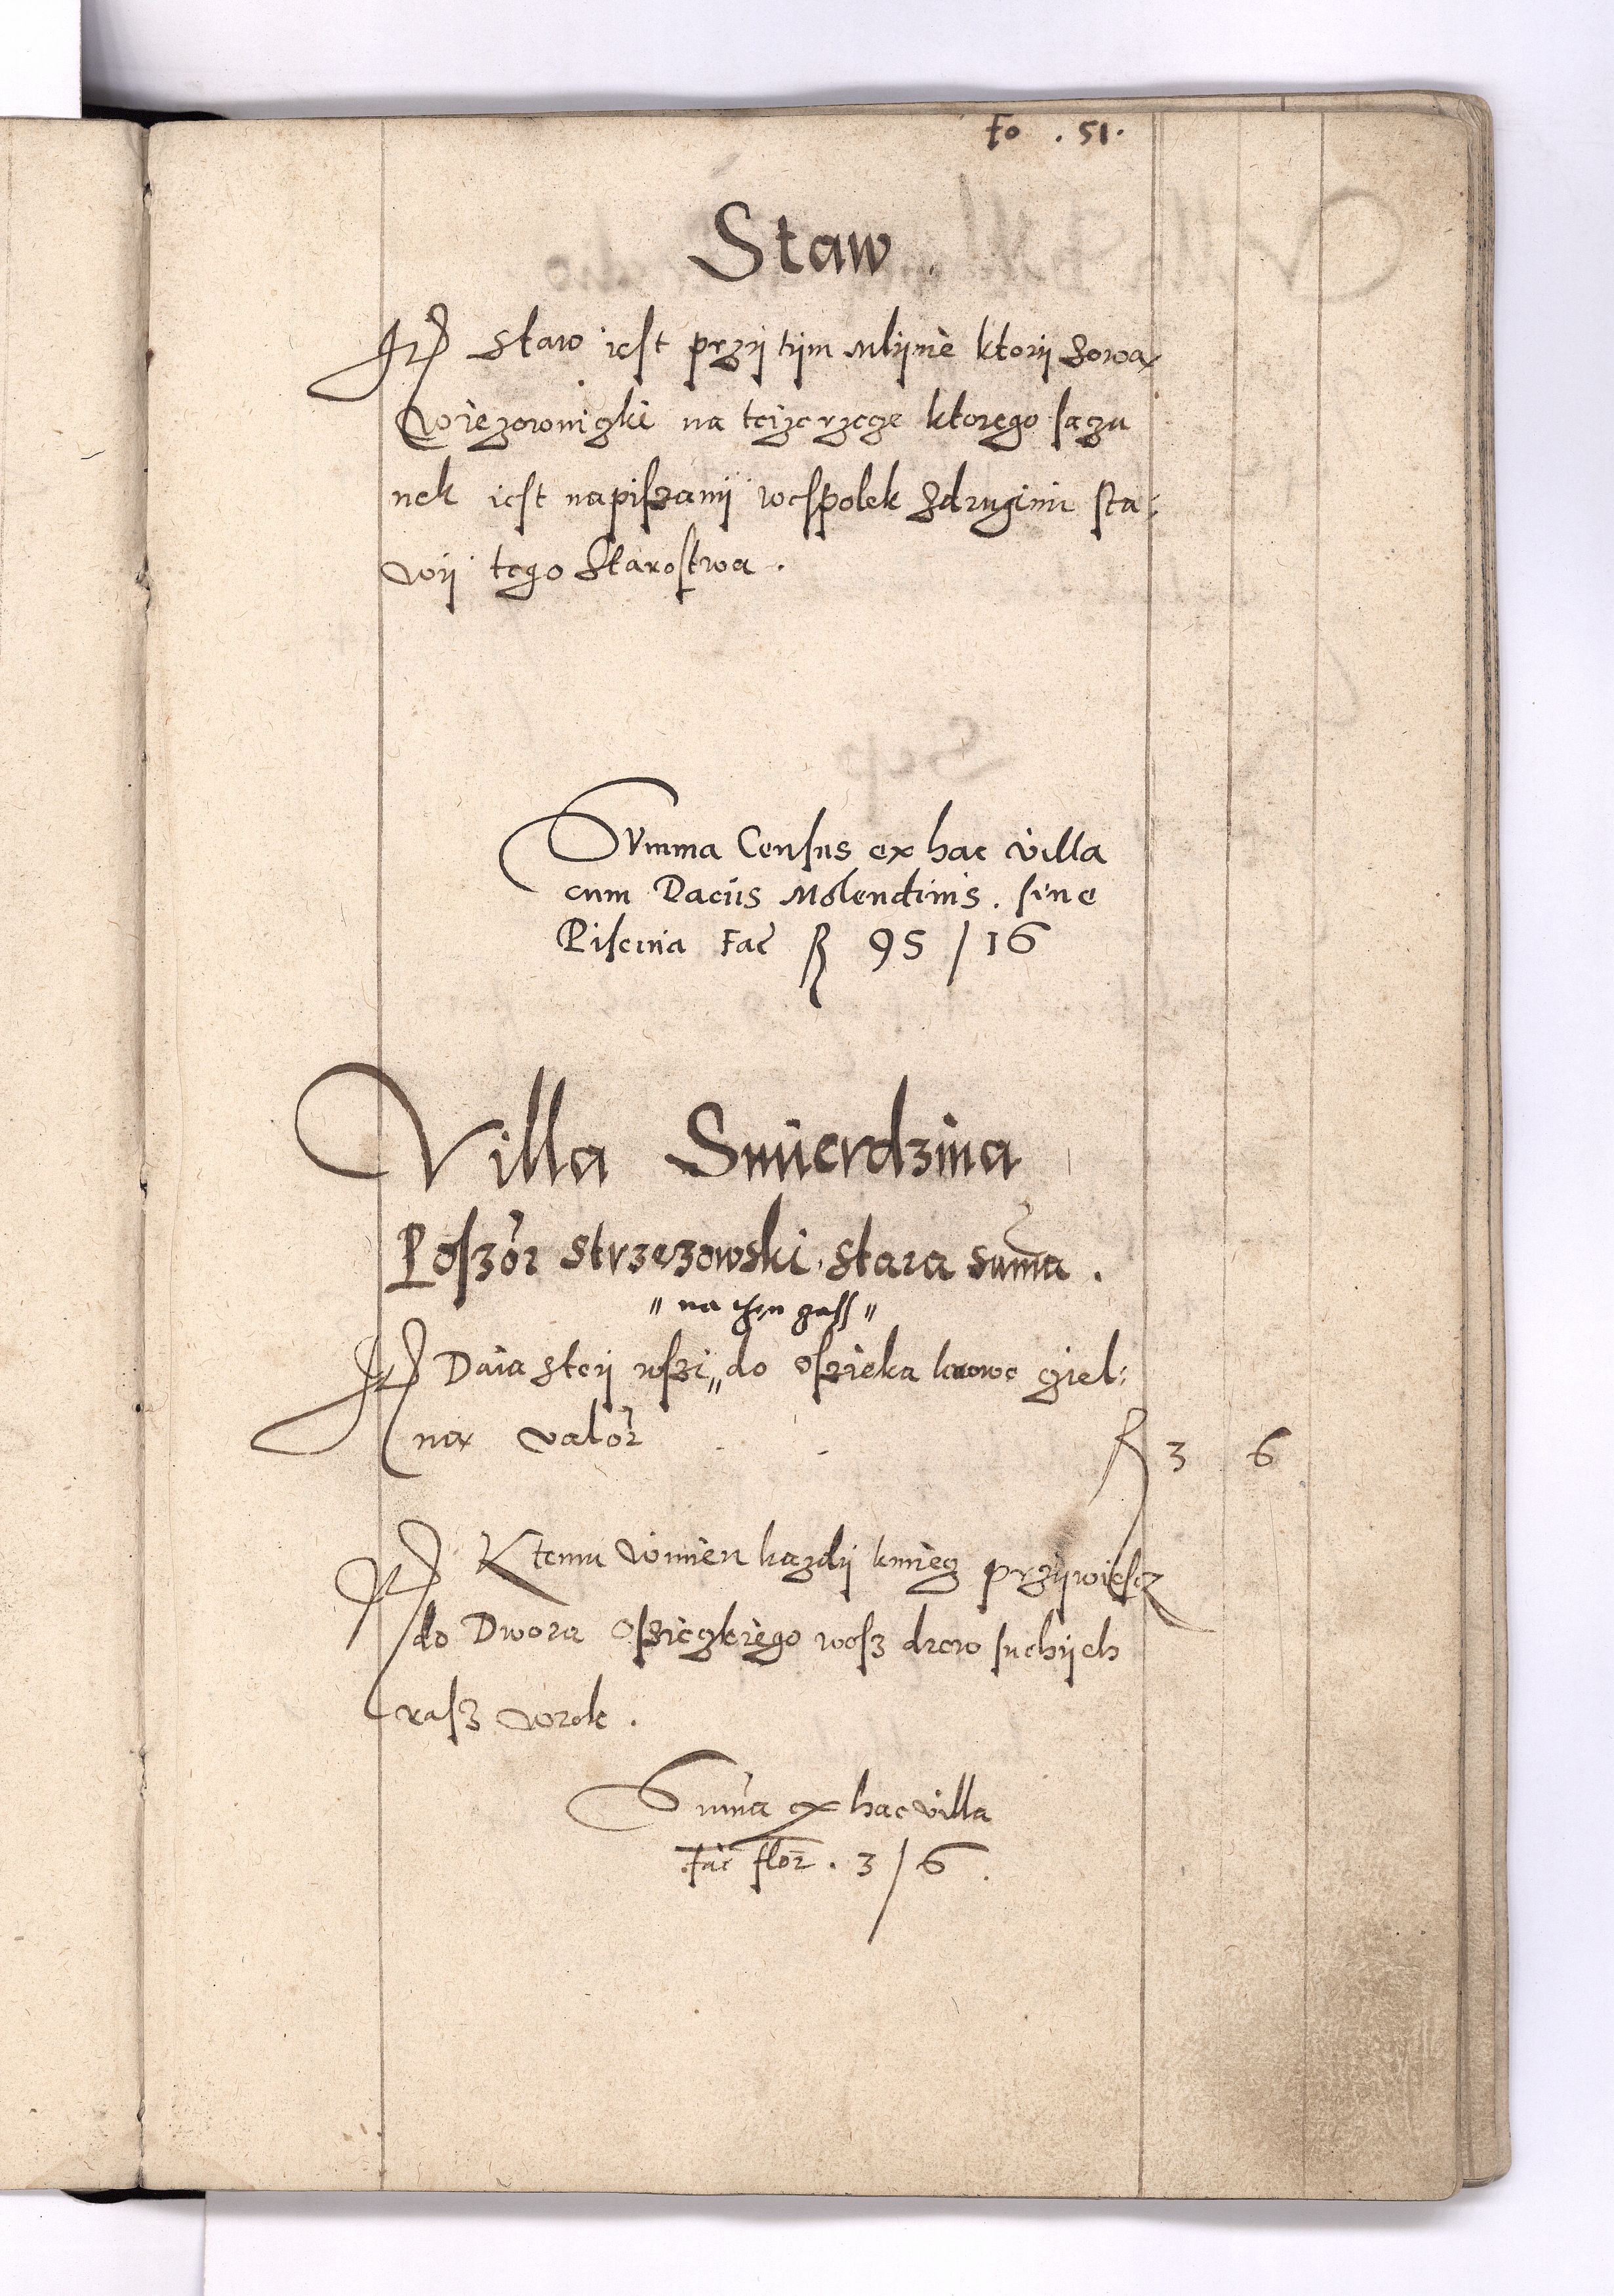 Fo . 51.
Staw .
It staw iest przÿ tÿm mlÿniè ktorÿ zową
Wiezownigki na teizerzece ktorego szaczu
nek iest napiszanÿ wespolek zdrugimi sta:
wÿ tego starostwa .
Summa Census ex hac villa
cum Daciis Molendinis . sine
Piscina Fac̄ R 95 / 16
Villa Smierdzina
Poszór Strzezowski . stara suma .
" na then zass "
It Daia steÿ wszi " do oszieka krowe giel:
ną valor R 3 6
It Ktemu wmien kazdÿ kmiecz przÿwiescz
do Dwora Osziegkiego wosz drew suchÿch
rasz wrok .
Suma ex hac villa
fac̄ flor . 3 / 6 .